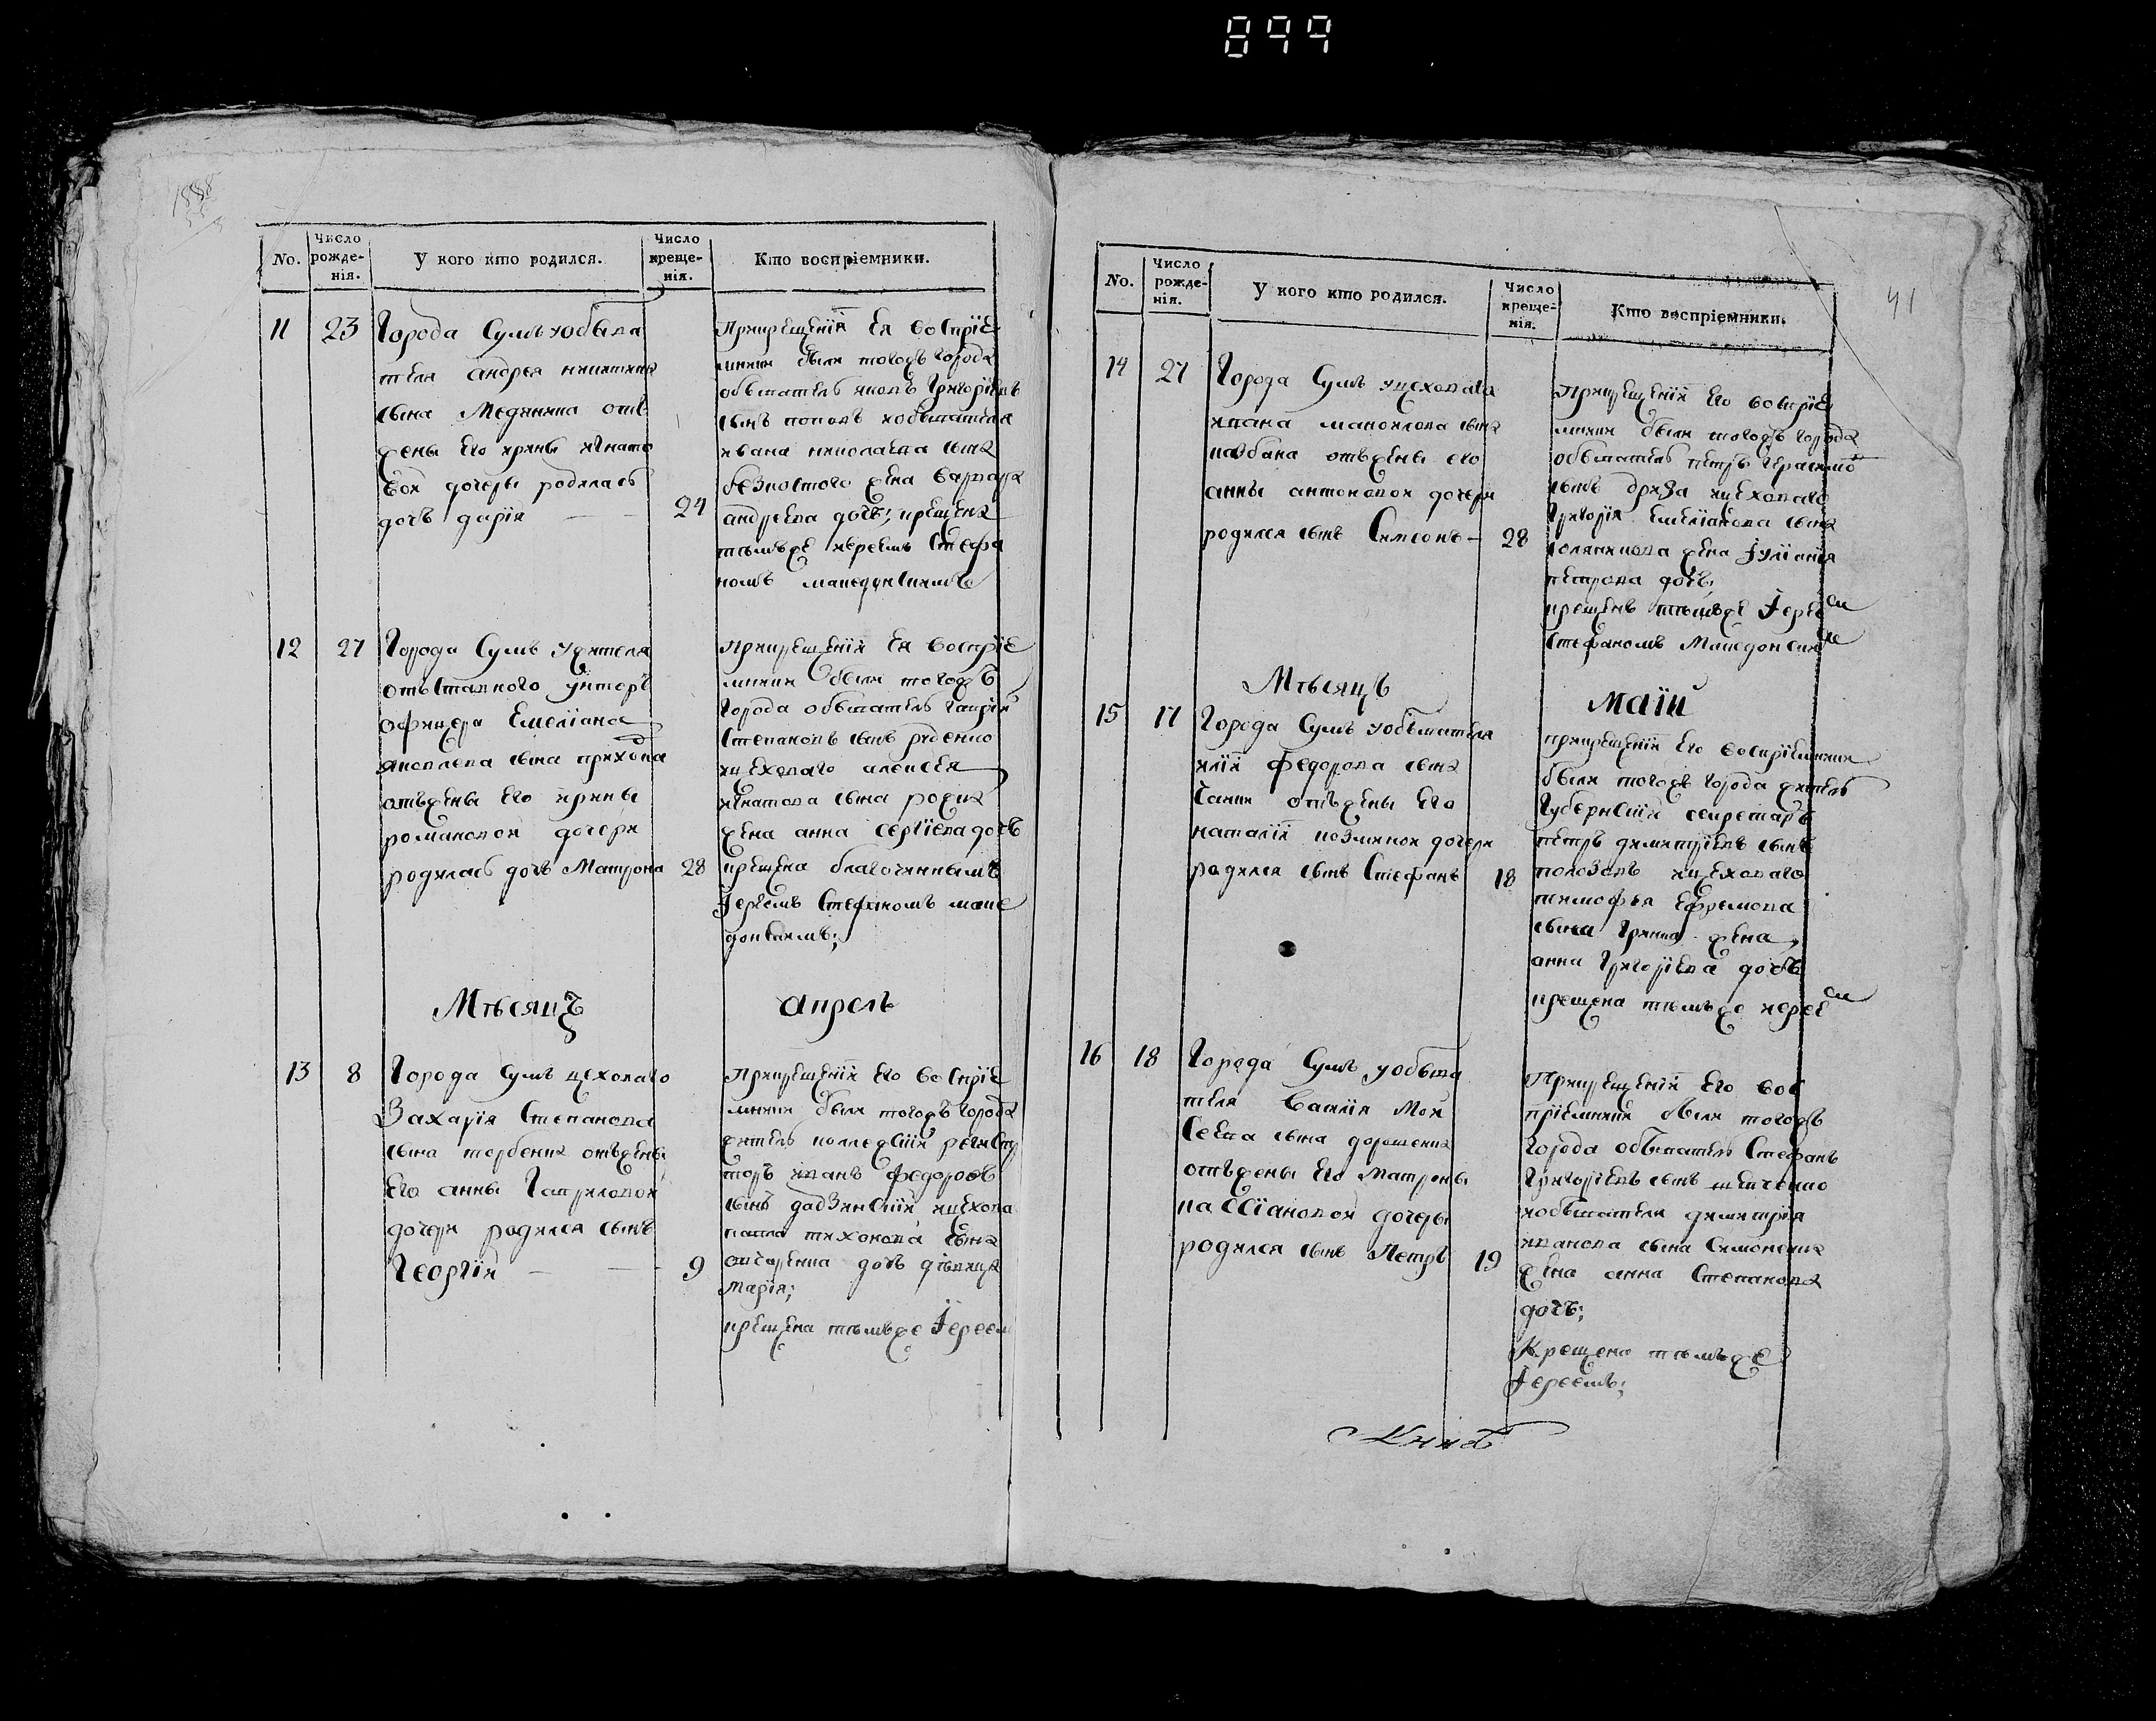 899
41
No.
Число рожде-нія.
У кого кто родился.
Число креще-нія.
Кто воспріемники.
11 23
Города Сумъ уобыва
теля андрея никитина
сына Медяника отъ
жены его ирины игнато
вой дочеры родилась
дочъ дарія
24
Прикрещеніи Ея воспріе
мники были тогожъ города
обыватель яковъ Григоріевъ
сынъ поповъ иобывателя
ивана николаева сына
жена варвара
андреева дочъ; крещена
темъже иереемъ Стефа
номъ македонскимъ
12 27
Города Сумъ ужителя
отъставного унторъ
офицера Емеліана
яковлева сына
отъжены его ирины
романовой дочери
родилась дочъ Матрона 28
прикрещеніи Ея воспріе
мники были тогожъ
города обыватель Гаврій
Степановъ сынъ
ицеховаго алексея
игнатова сына
жена анна сергіева дочъ
крещена благочиннымъ
Іереемъ Стефаномъ маке
донскимъ;
Мтьсяцъ апрель
13 8
Города Сумъ цеховаго
Захарія Степанова
сына торбенка отъжены
Его анны Гавриловой
дочери родился сынъ
Георгій 9
Прикрещеніи Его воспріе
мники были тогожъ города
житель коллежскій регистр
торъ иванъ федоровъ
сынъ ицехова
павла тихонова сына
дочъ девица
марія;
крещена темъже Іереем
No.
Число рожде-нія.
У кого кто родился.
Число креще-нія.
Кто воспріемники.
14 27
Города Сумъ уцеховаго
ивана манойлова сына
отъжены его
анны антоновой дочери
родился сынъ Симеонъ 28
Прикрещеніи Его воспріе
мники были тогожъ города
обыватель петръ Герасимо
сынъ ицеховаго
Григорія Емеліанова сына
жена Іуліанія
петрова дочъ;
крещенъ темъже Іерее
Стефаномъ Македонским
Мтьсяцъ маіи
15 17
Города Сумъ уобывателя
иліи федорова сына
отъжены Его
наталіи козминой дочери
родился сынъ Стефанъ 18
прикрещеніи Его воспріемники
были тогожъ города житель
Губернскій секретаръ
петръ димитріевъ сынъ
полозовъ ицеховаго
тимофея Ефремова
сына жена
анна Григоріева дочъ
крещена темъже иерее
16 18
Города Сумъ уобыва
теля василія Мои
сеева сына дорошенка
отъжены Его матроны
касіановой дочеры
родился сынъ Петръ 19
Прикрещеніи Его вос
пріемники были тогожъ
города обыватель Стефанъ
Григоріевъ сынъ шевченко
иобывателя димитрія
иванова сына Симоненка
жена анна Степанова
дочъ;
Крещена темъже
Іереемъ;